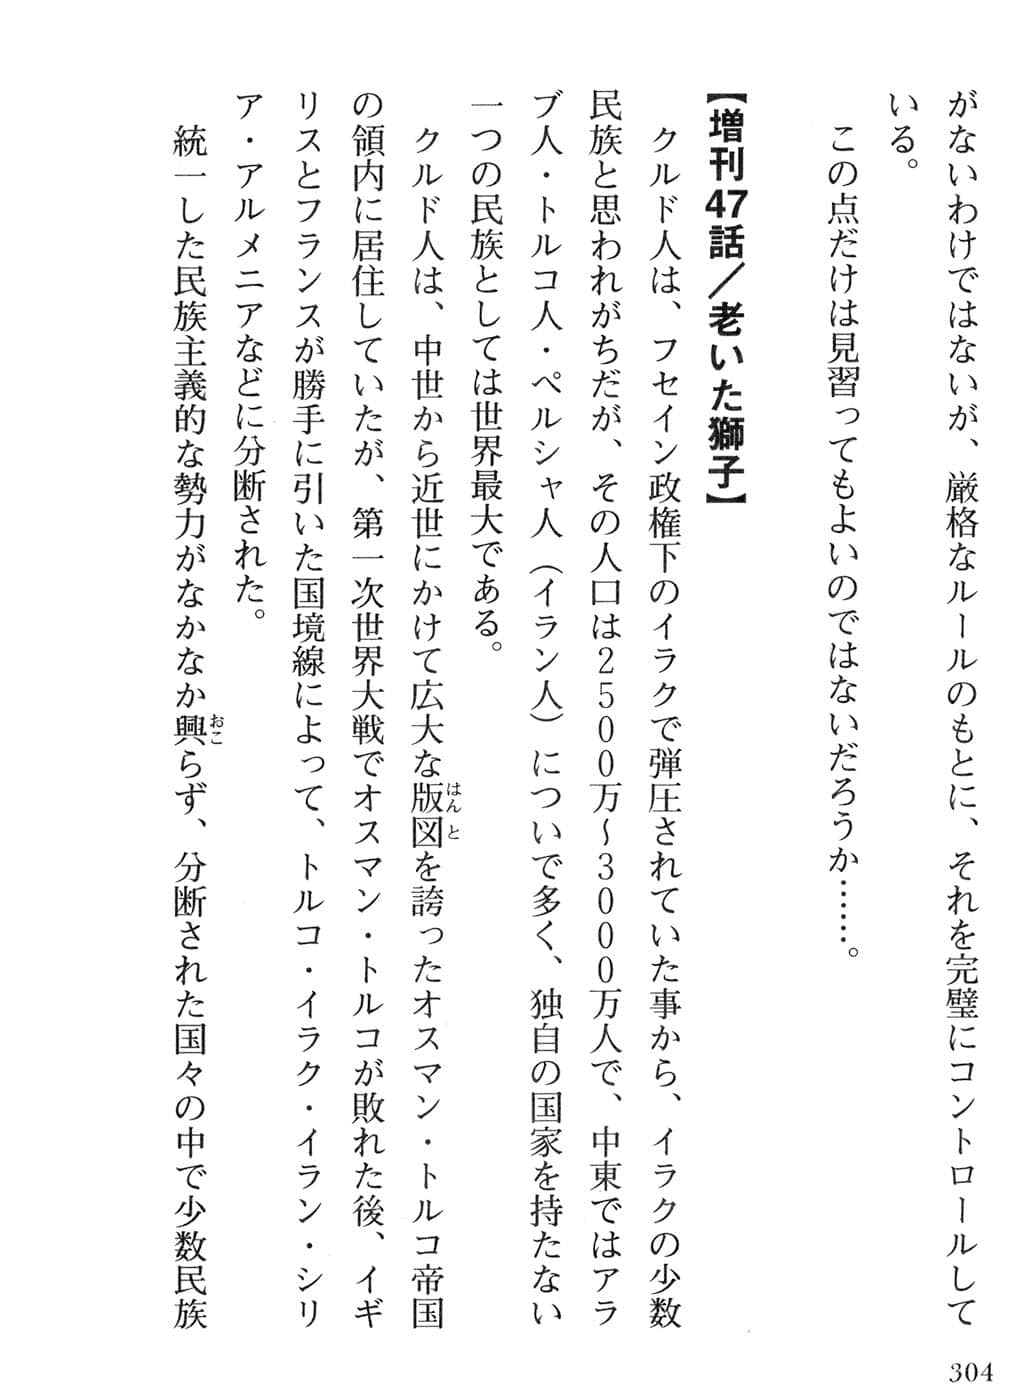 がないわけではないが、厳格なルールのもとに、それを完璧にコントロールして
いる。
この点だけは見習ってもよいのではないだろうか……。
【増刊47話／老いた獅子】
クルド人は、フセイン政権下のイラクで弾圧されていた事から、イラクの少数
民族と思われがちだが、その人口は２５００万〜３０００万人で、中東ではアラ
ブ人・トルコ人・ペルシャ人（イラン人）についで多く、独自の国家を持たない
一つの民族としては世界最大である。
クルド人は、中世から近世にかけて広大な版図を誇ったオスマン・トルコ帝国
はんと
の領内に居住していたが、第一次世界大戦でオスマン・トルコが敗れた後、イギ
リスとフランスが勝手に引いた国境線によって、トルコ・イラク・イラン・シリ
ア・アルメニアなどに分断された。
統一した民族主義的な勢力がなかなか興らず、分断された国々の中で少数民族
おこ
304